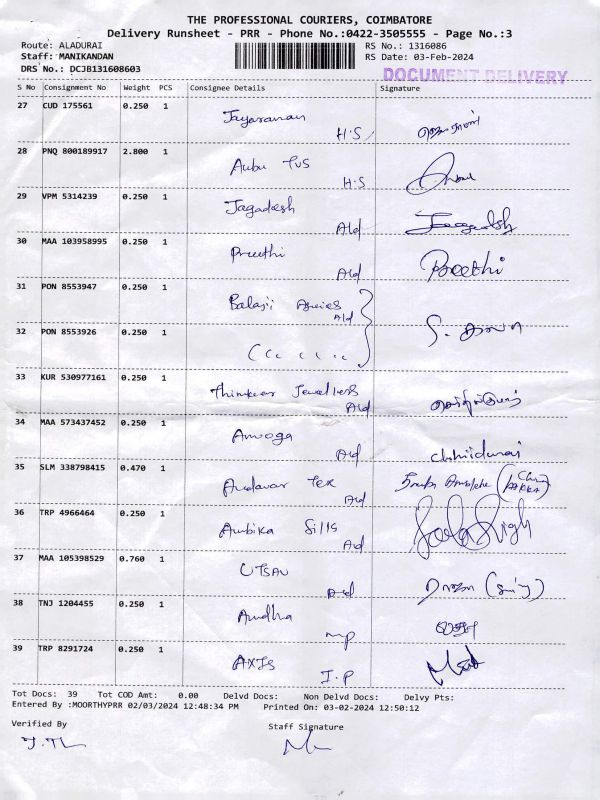 THE PROFESSIONAL COURIERS, COIMBATORE
Delivery Runsheet - PRR - Phone No.:0422-3505555 - Page No.:3
Route: ALADURAI RS No.: 1316086
Staff: MANIKANDAN RS Date: 03-Feb-2024
DRS No.: DCJB131608603 DOCUMENT DELIVERY
S No Consignment No Weight PCS Consignee Details Signature
27 CUD 175561 0.250 1 Jayaraman H.S
28 PNQ 800189917 2.800 1 Anbu TVS H.S
29 VPM 5314239 0.250 1 Jagadesh Ald Jaagadesh
30 MAA 103958995 0.250 1 Preethi Ald Preethi
31 PON 8553947 0.250 1 Balaji Ald
32 PON 8553926 0.250 1
33 KUR 530977161 0.250 1 Jewellers Ald
34 MAA 573437452 0.250 1 Amoga Ald
35 SLM 338798415 0.470 1 Andavar Tex Ald
36 TRP 4966464 0.250 1 Ambika Silks Ald
37 MAA 105398529 0.760 1 UTSAV Ald
38 TNJ 1204455 0.250 1 Andha mp
39 TRP 8291724 0.250 1 AXIS I.P
Tot Docs: 39 Tot COD Amt: 0.00 Delvd Docs: Non Delvd Docs: Delvy Pts:
Entered By :MOORTHYPRR 02/03/2024 12:48:34 PM Printed On: 03-02-2024 12:50:12
Verified By Staff Signature